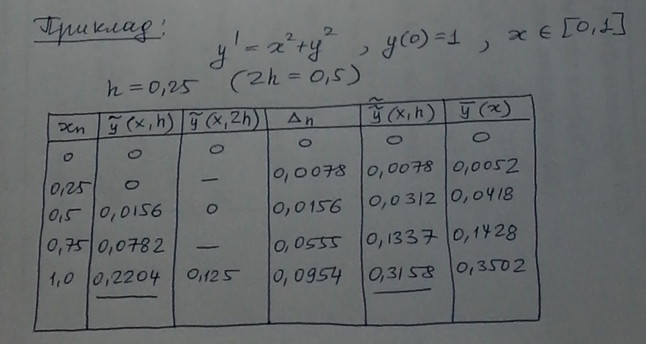 Приклад:
y' = x² + y² , y(0)=1 , x ∈ [0,1]
h = 0,25 (2h = 0,5)
xn ỹ(x,h) ỹ(x,2h) Δn ỹ̃(x,h) ȳ(x)
0 0 0 0 0 0
0,25 0 — 0,0078 0,0078 0,0052
0,5 0,0156 0 0,0156 0,0312 0,0418
0,75 0,0782 — 0,0555 0,1337 0,1428
1,0 0,2204 0,125 0,0954 0,3158 0,3502